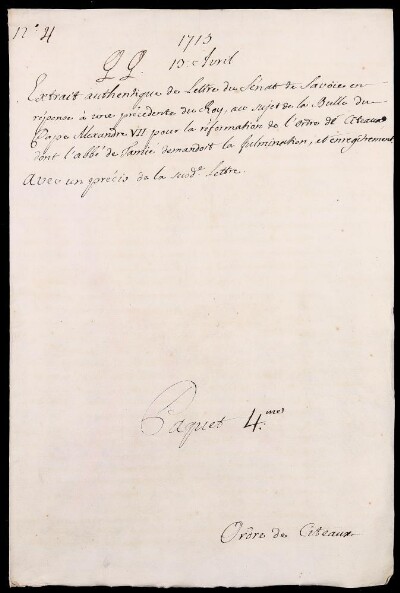 N.° 4
1713
QQ. 13 Avril
Extrait authentique de Lettre du Sénat de Savoie en
réponse à une précédente du Roy, au sujet de la Bulle du
Pape Alexandre VII pour la réformation de l'ordre de Citeaux
dont l'abbé de Tamié demandoit la fulmination, et enregîtrement
Avec un précis de la susd.e lettre.
Paquet 4.me
Ordre de Citeaux